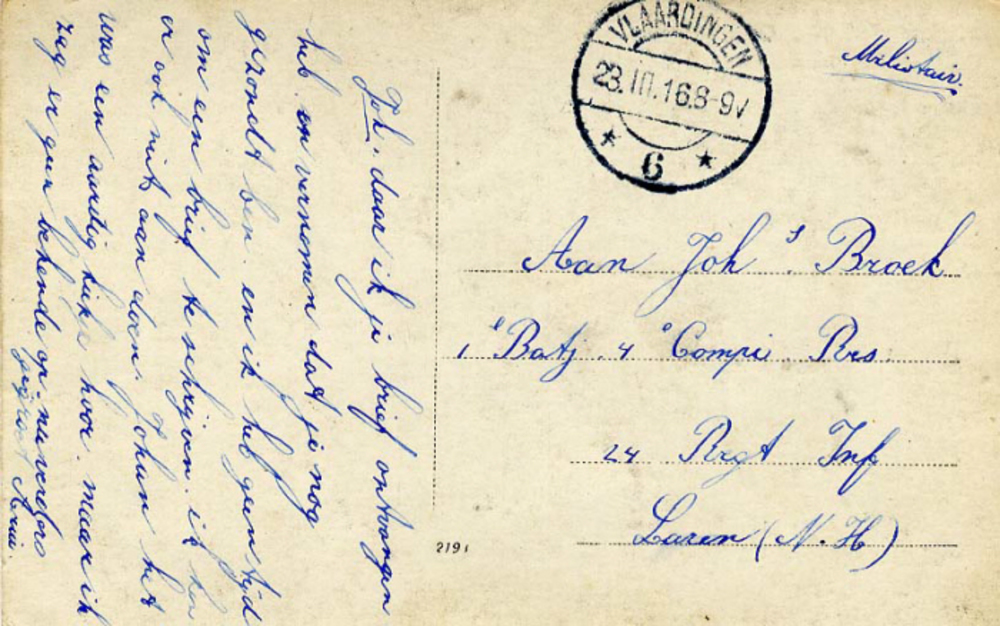 Joh. daar ik je brief ontvangen
heb en vernomen dat je nog
gezondt ben. en ik heb geen tijd
om een brief te schrijven. ik ben
er ook niet aan doen. Johan het
was een aardig kiekje hoor. maar ik
zag er geen bekende op. nu verders
gegroet Arie.
VLAARDINGEN
23.III.16.8-9V
6
Melistair.
Aan Joh s Broek
1e Batj. 4e Compi. Res
24 Regt Inf
Laren (N.H)
2191